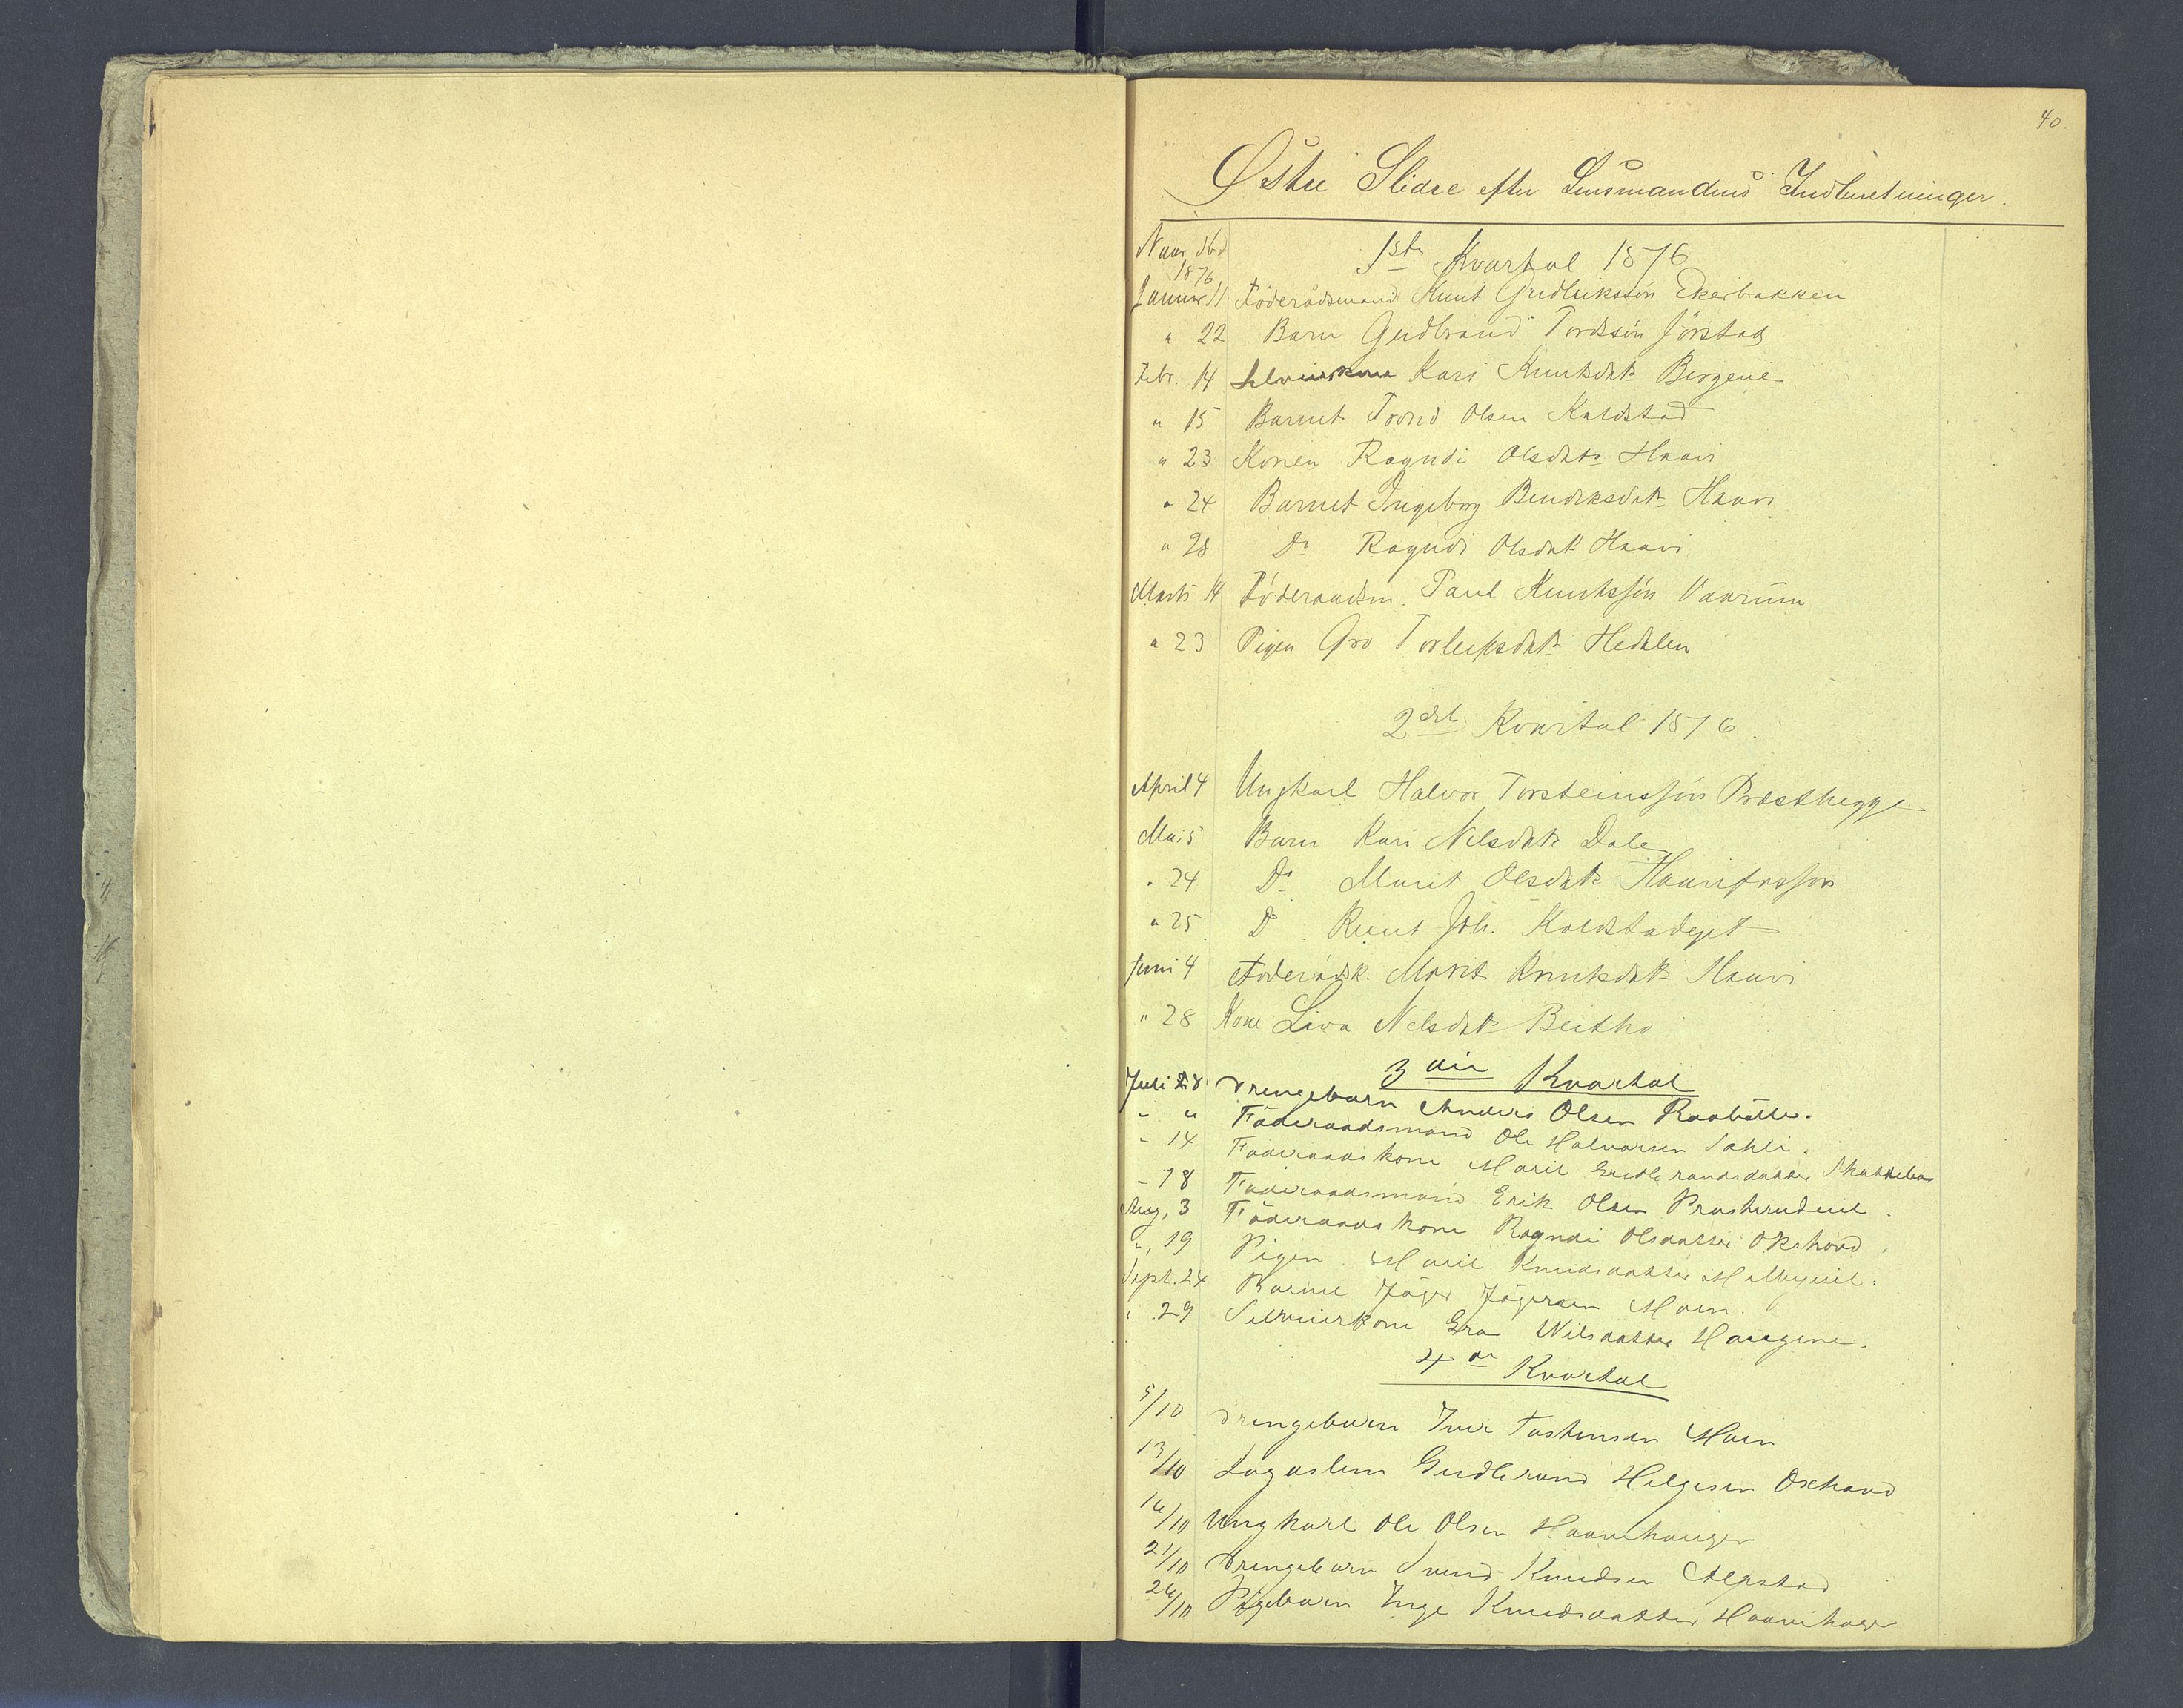 40.
Østre Slidre efter Lensmandens Indberetninger.
Naar död 1ste Kvartal 1876
1876
Januar 11 Föderådsmand Knut Gudbrikssön Ekerbakken
" 22 Barn Gudbrand Tordssön Jörstad
Febr. 14 Selveierkone Kari Knutsdatr Bergene
" 15 Barnet Trond Olsen Kaldstad
" 23 Konen Ragndi Olsdatr Haavi
" 24 Barnet Ingeborg Bendiksdatr Haavi
" 28 Do Ragndi Olsdatr Haavi
Marts 14 Föderaadsm. Paul Knutssön Vaarum
" 23 Pigen Gro Torleifsdatr Hedalen
2det Kvartal 1876.
April 4 Ungkarl Halvor Torsteinssön Præsthegge
Mai 5 Barn Kari Nilsdatr Dale
" 24 Do Marit Olsdatr
" 25 Do Knut Joh. Kaldstadejet
Juni 4 Föderådsk. Marit Knutsdatr Haavi
" 28 Kone Liva Nelsdatr Beitho
3die Kvartal
Juli 28 Drengebarn Anders Olsen
" " Föderaadsmand Ole Halvorsen Dahle.
" 14 Föderaadskone Marit Gudbrandsdatter
" 18 Föderaadsmand Erik Olsen
Aug. 3 Föderaadskone Ragndi Olsdatter Okshovd.
" 19 Pigen Marit Knudsdatter
Sept. 24 Barnet Jöger Jögersen Moen.
" 29 Selveierkone Gro Nilsdatter Haugene.
4de Kvartal
5/10 Drengebarn Iver Tostensen Moen
13/10 Gudbrand Helgesen Oxhovd
16/10 Ungkarl Ole Olsen Haavihaugen
21/10 Drengebarn Svend Knudsen Alfstad
26/10 Pigebarn Inge Knudsdatter